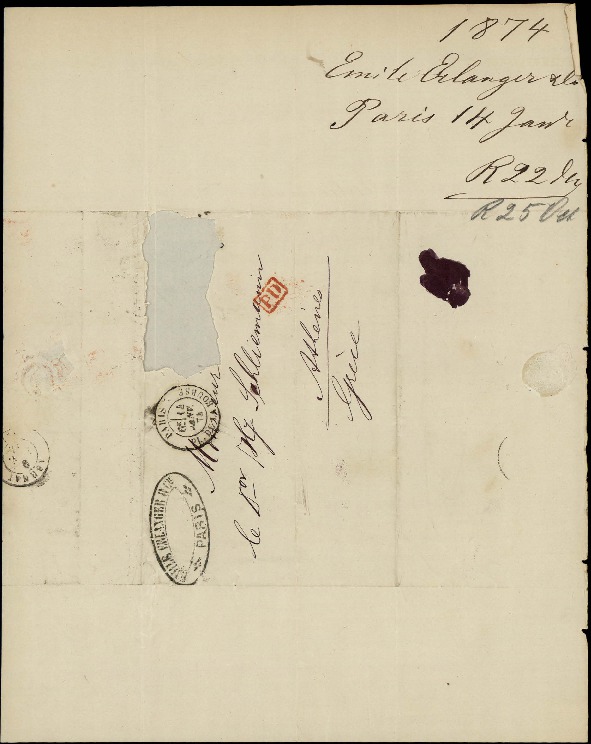 1874
Emile Erlanger & Co
Paris 14 Janv
R 22 do
R 25 Oct
Monsieur
le Dor Hy Schliemann
Athènes
Grèce
PD
PARIS
PL. DE LA BOURSE
JANV.
74
EMILE ERLANGER & CIE
PARIS